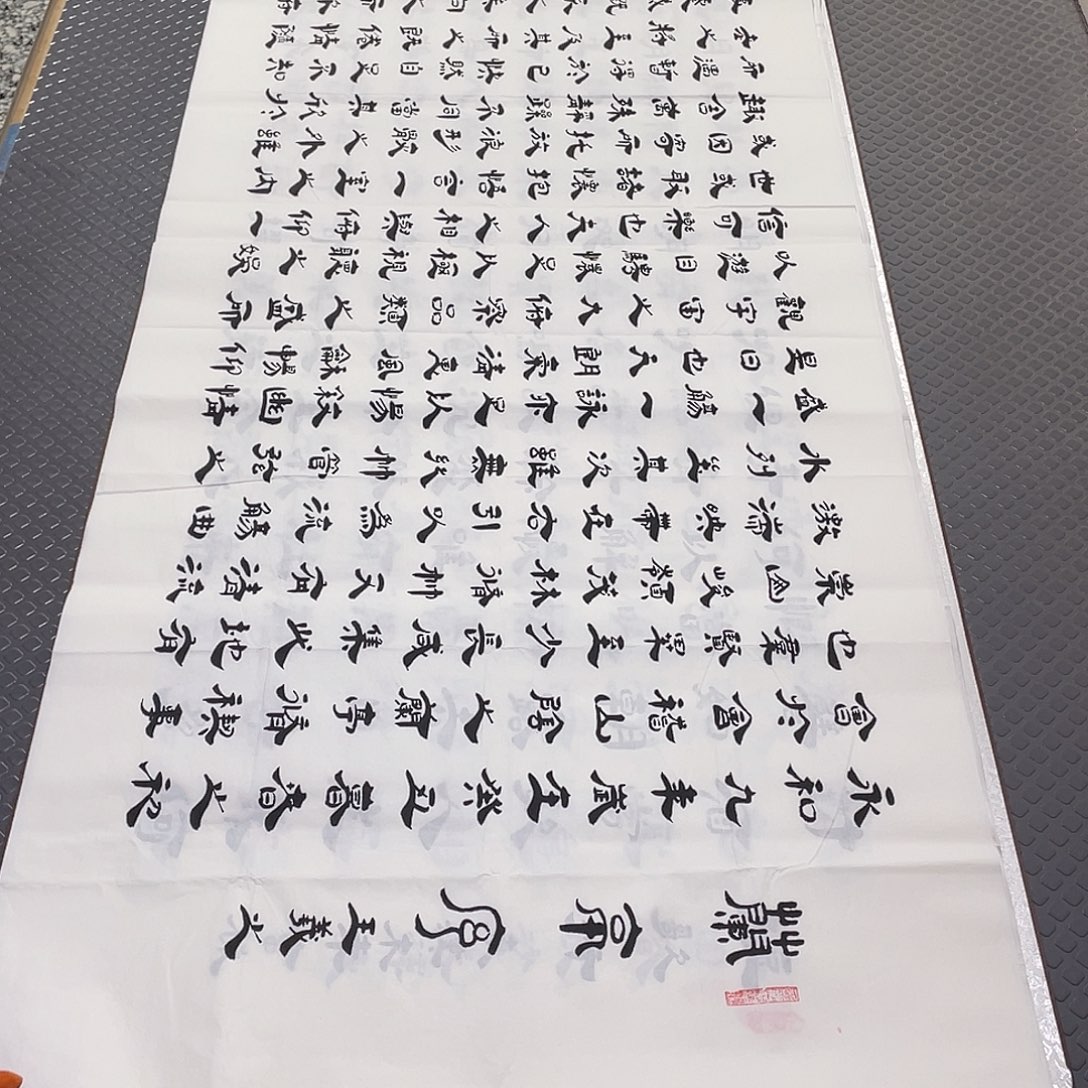 蘭亭序王羲之
永和九年歲在癸丑暮春之初
會於會稽山陰之蘭亭脩禊事
也羣賢畢至少長咸集此地有
崇山峻嶺茂林脩竹又有清流
激湍映帶左右引以為流觴曲
水列坐其次雖無絲竹管弦之
盛一觴一詠亦足以暢敘幽情
是日也天朗氣清惠風和暢仰
觀宇宙之大俯察品類之盛所
以遊目騁懷足以極視聽之娛
信可樂也夫人之相與俯仰一
世或取諸懷抱悟言一室之內
或因寄所託放浪形骸之外雖
趣舍萬殊靜躁不同當其欣於
所遇暫得於己快然自足不知
老之將至及其所之既倦情隨